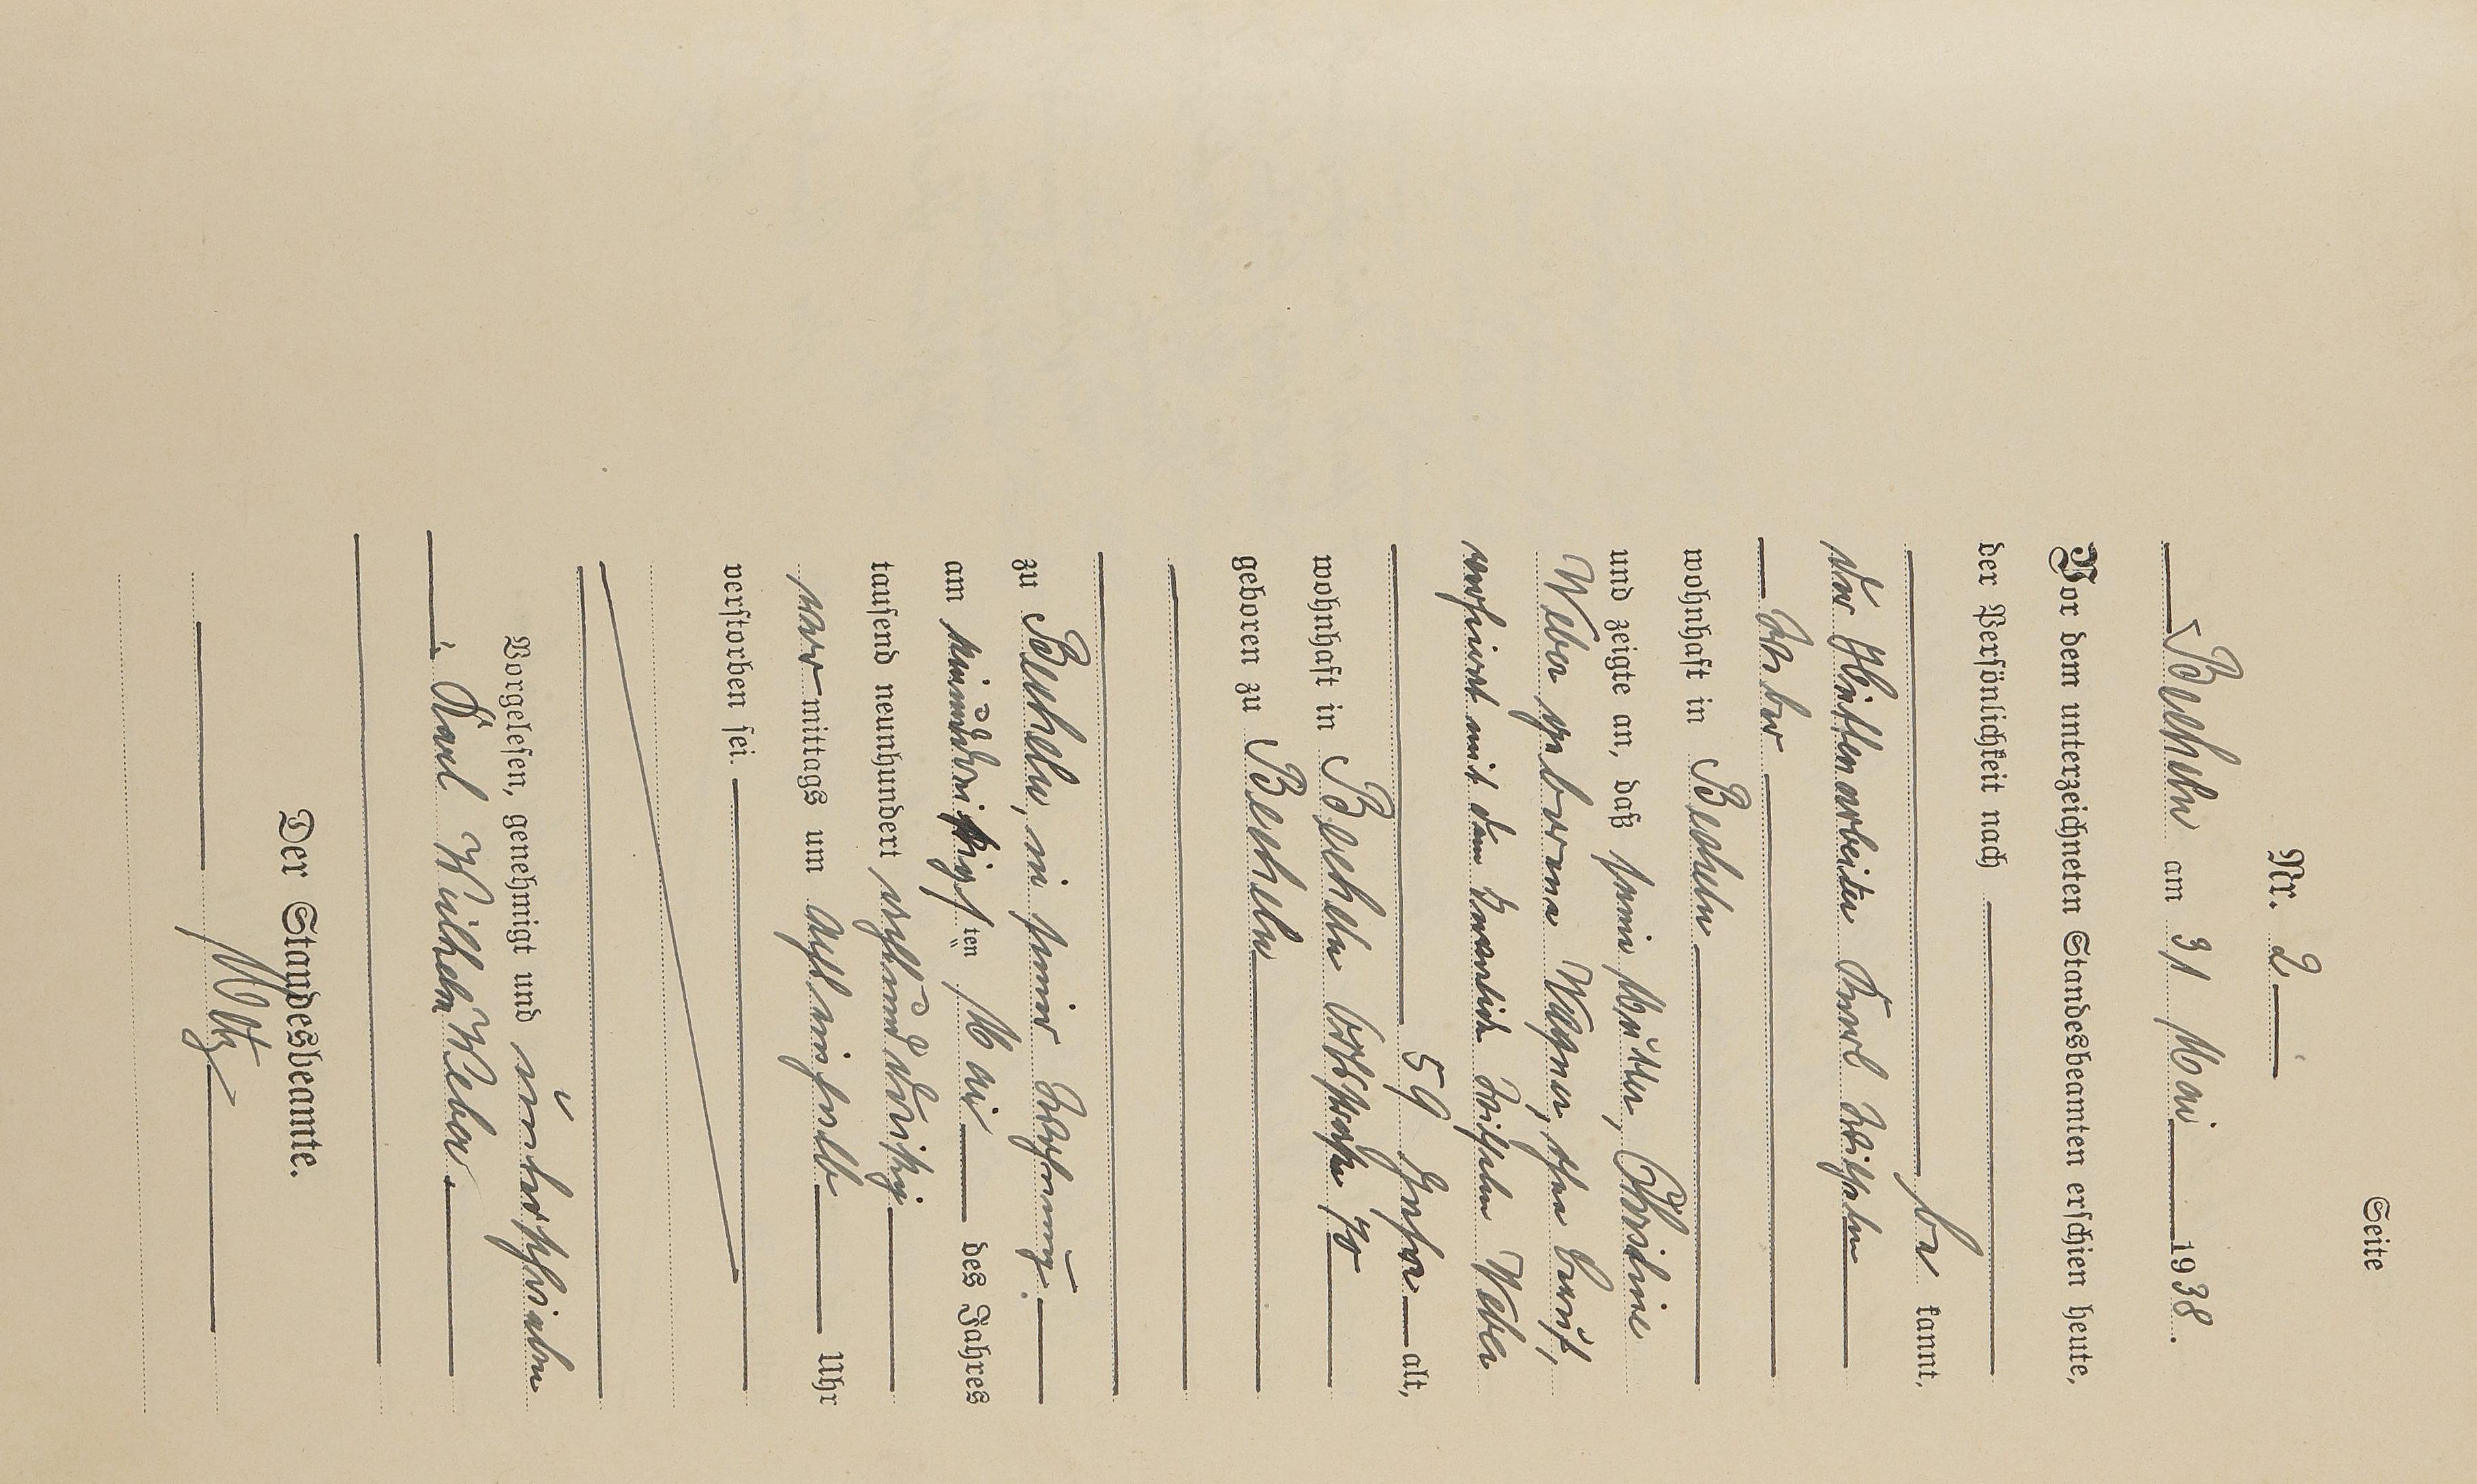 Seite
Nr. 2
Becheln am 31 Mai 1938.
Vor dem unterzeichneten Standesbeamten erschien heute,
der Persönlichkeit nach
be kannt,
der Hüttenarbeiter Karl Wilhelm
Weber
wohnhaft in Becheln
und zeigte an, daß seine Mutter, Christine
Weber geborene Wagner, ohne Beruf,
verheiratet mit dem Landwirt Wilhelm Weber
59 Jahre alt,
wohnhaft in Becheln
geboren zu Becheln
zu Becheln, in seiner Wohnung.
am einunddreißigsten Mai des Jahres
tausend neunhundert achtunddreißig
vor mittags um acht einhalb Uhr
verstorben sei.
Vorgelesen, genehmigt und unterschrieben
Karl Wilhelm Weber.
Der Standesbeamte.